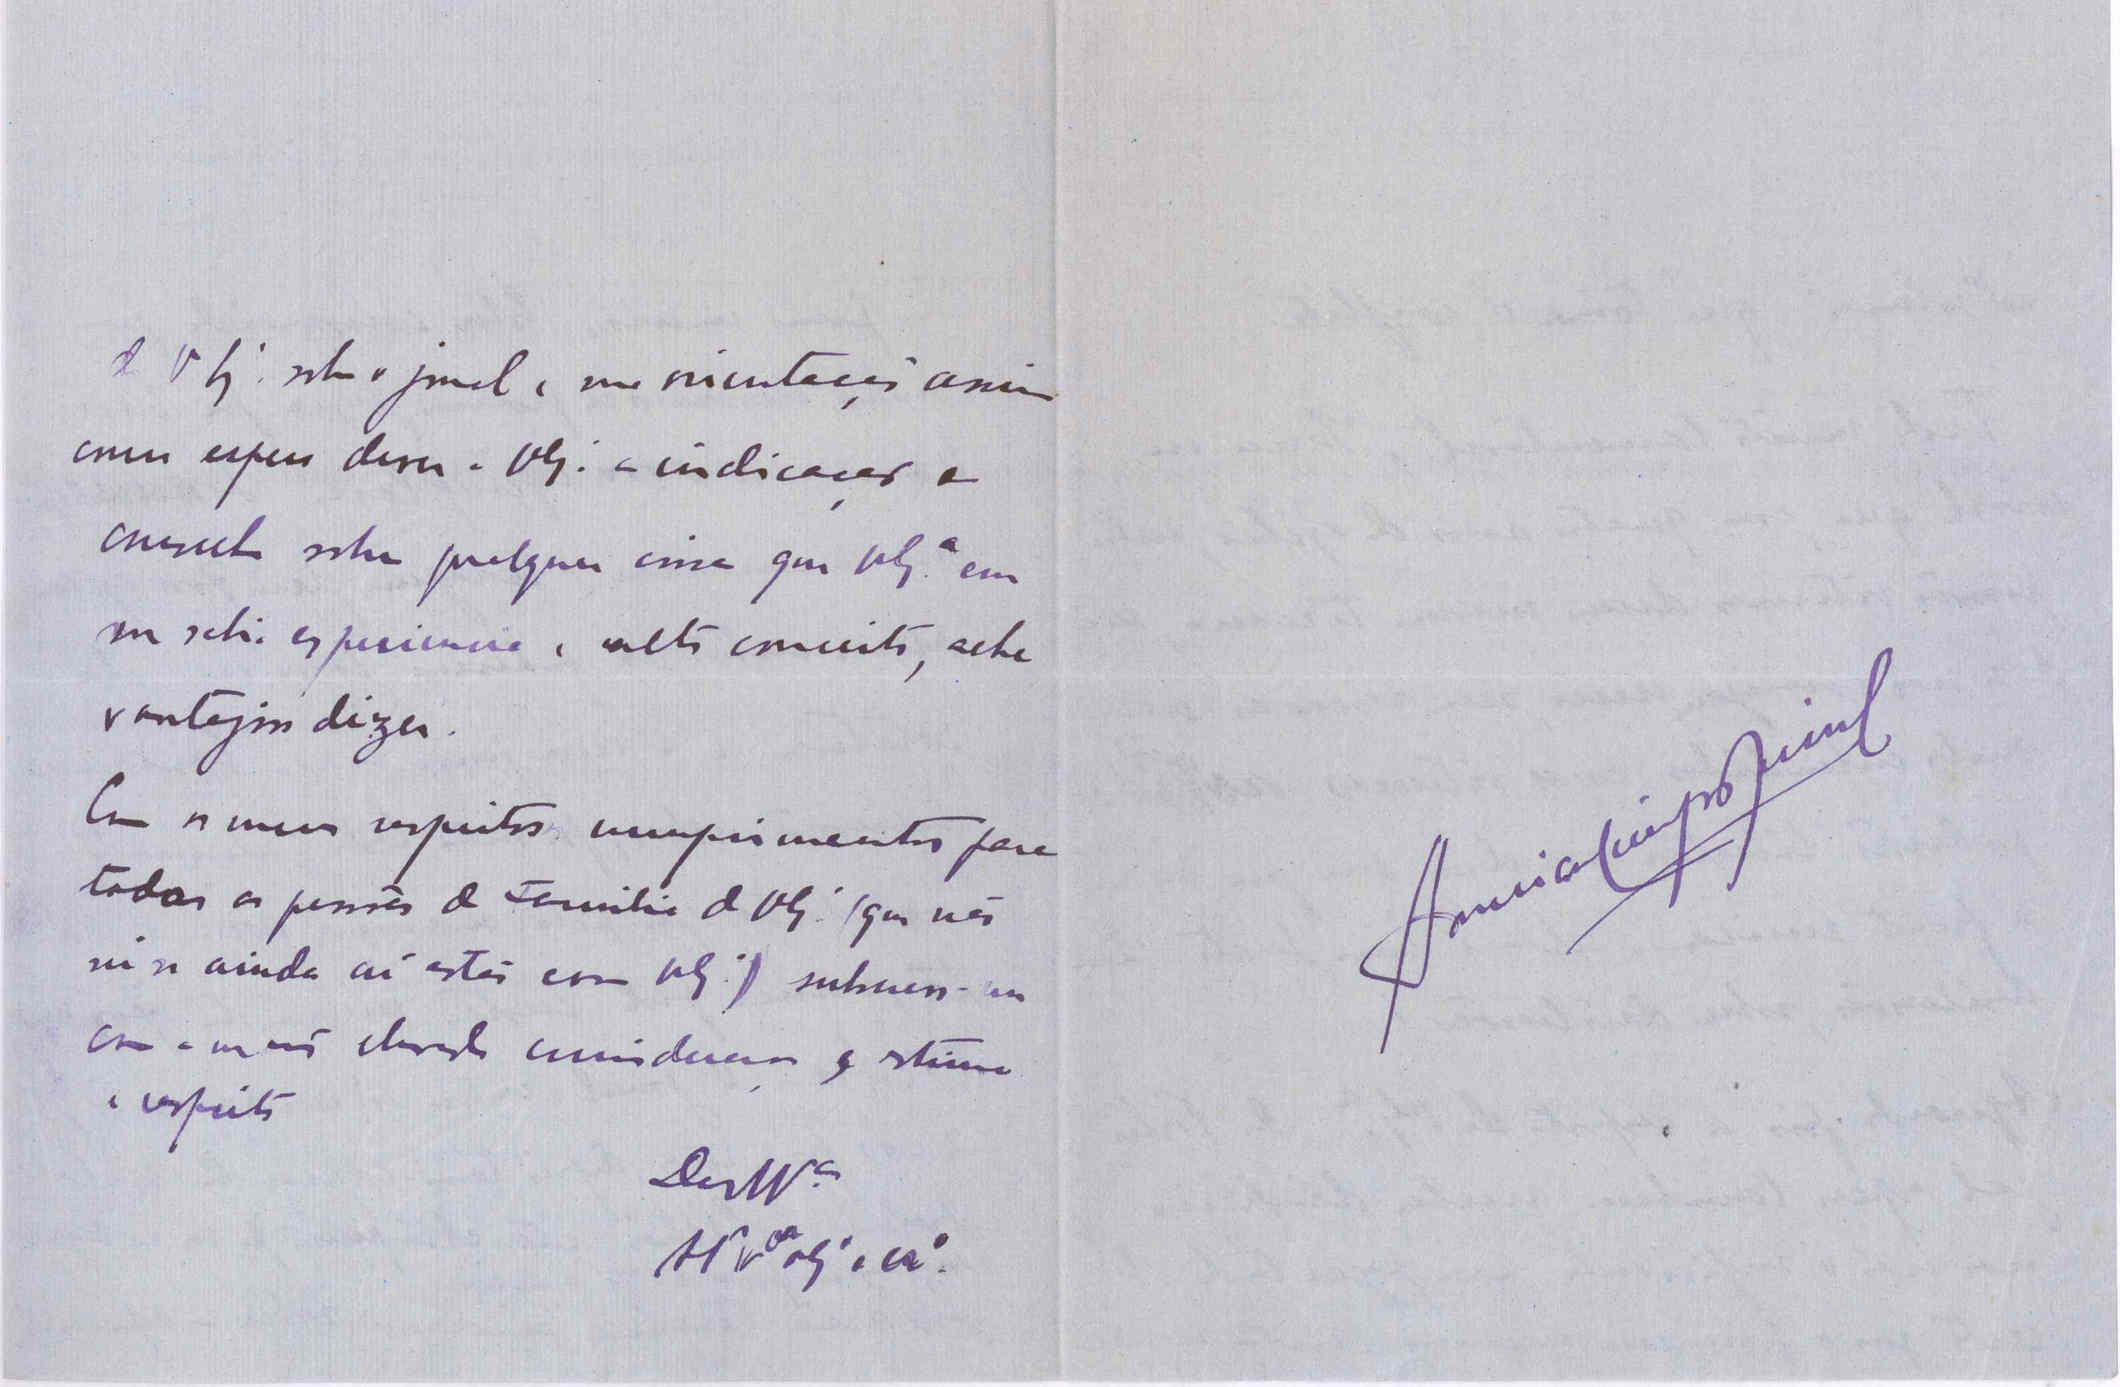 de V Ex.ª sobre o jornal e sua orientação assim
como espero dever a V Ex.ª a indicação e
conselho sobre qualquer coisa que V Ex.ª em
sua sabia experiencia e alto conceito, ache
vantajoso dizer.
Com os meus respeitosos cumprimentos para
todas as pessoas de Familia de V Ex.ª (que não
sei se ainda aí estão com V Ex.ª) subscrevo-me
com a mais elevada consideração e estima
e respeito
De V